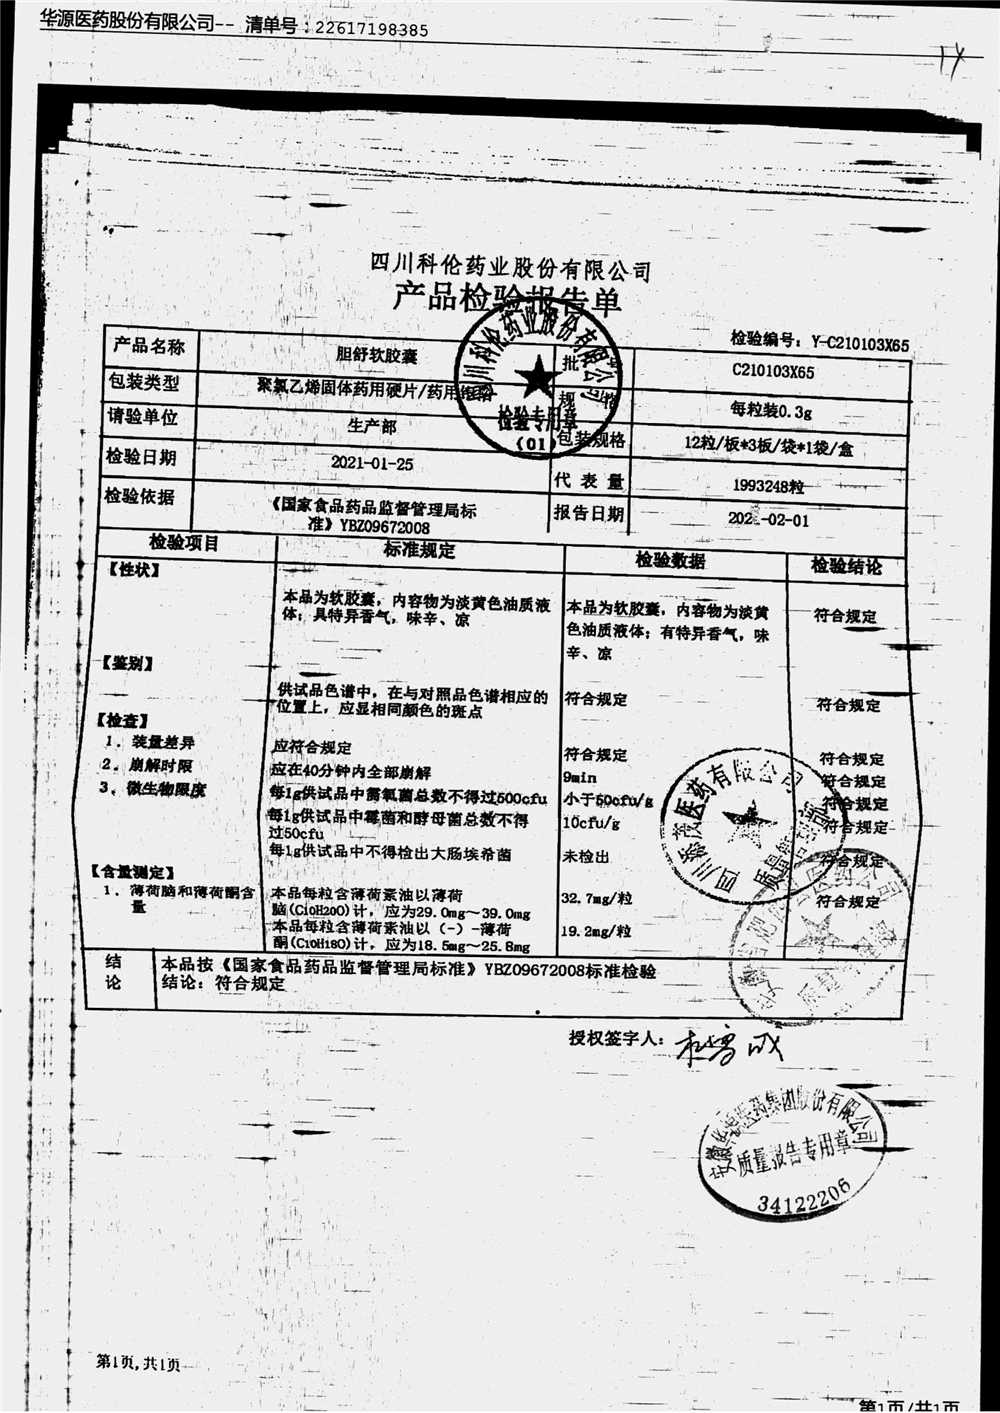 华源医药股份有限公司-- 清单号:22617198385
四川科伦药业股份有限公司
产品检验报告单
检验编号: Y-C210103X65
产品名称 胆舒软胶囊 批 C210103X65
包装类型 聚氯乙烯固体药用硬片/药用 规 每粒装0.3g
请验单位 生产部 包装规格 12粒/板*3板/袋*1袋/盒
检验日期 2021-01-25 代表量 1993248粒
检验依据 《国家食品药品监督管理局标
准》YBZ09672008
报告日期 -02-01
检验项目 标准规定 检验数据 检验结论
【性状】
本品为软胶囊,内容物为淡黄色油质液
体;具特异香气,味辛、凉
本品为软胶囊,内容物为淡黄
色油质液体;有特异香气,味
辛、凉
符合规定
【鉴别】
供试品色谱中,在与对照品色谱相应的
位置上,应显相同颜色的斑点
符合规定 符合规定
【检查】
1、装量差异 应符合规定 符合规定 符合规定
2、崩解时限 应在40分钟内全部崩解 9min 符合规定
3、微生物限度 每1g供试品中需氧菌总数不得过500cfu 小于50cfu/g 符合规定
每1g供试品中霉菌和酵母菌总数不得
过50cfu
10cfu/g 符合规定
每1g供试品中不得检出大肠埃希菌 未检出 符合规定
【含量测定】
1、薄荷脑和薄荷酮含
量
本品每粒含薄荷素油以薄荷
脑(C10H20O)计,应为29.0mg～39.0mg
32.7mg/粒 符合规定
本品每粒含薄荷素油以(-)-薄荷
酮(C10H18O)计,应为18.5mg～25.8mg
19.2mg/粒
结
论
本品按《国家食品药品监督管理局标准》YBZ09672008标准检验
结论:符合规定
授权签字人:
四川科伦药业股份有限公司
检验专用章
(01)
医药有限公司
安徽华源医药集团股份有限公司
质量报告专用章
34122206
第1页,共1页
第1页/共1页